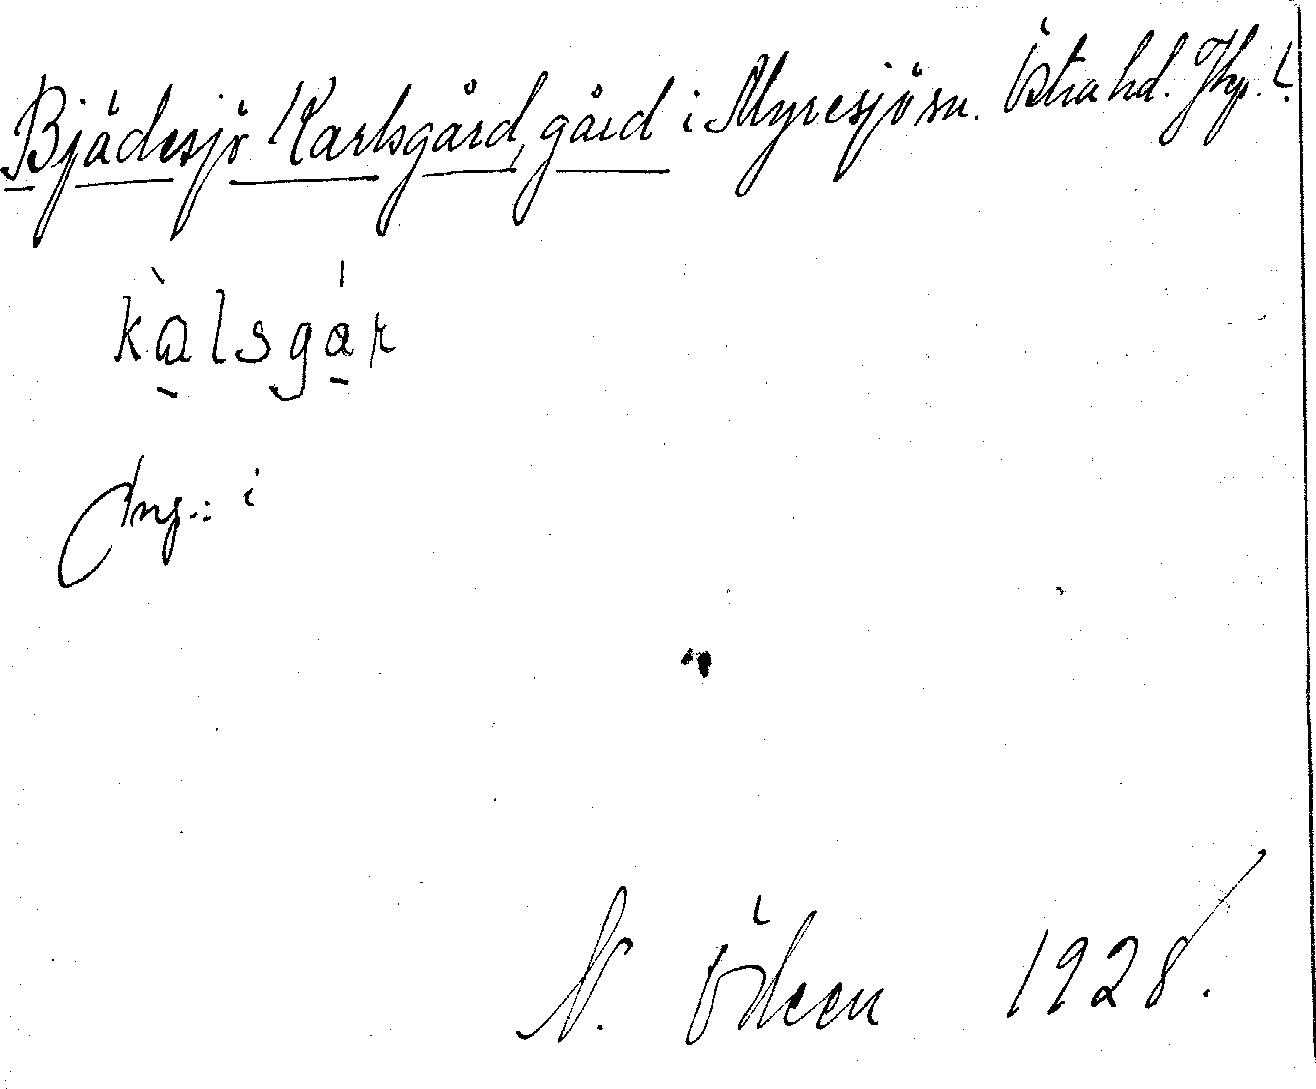 Bjädesjö Karlsgård, gård i Myresjö sn. Östra hd. Jkp. l.
kàlsgár
Ang.: i
N. Ödeen 1928.